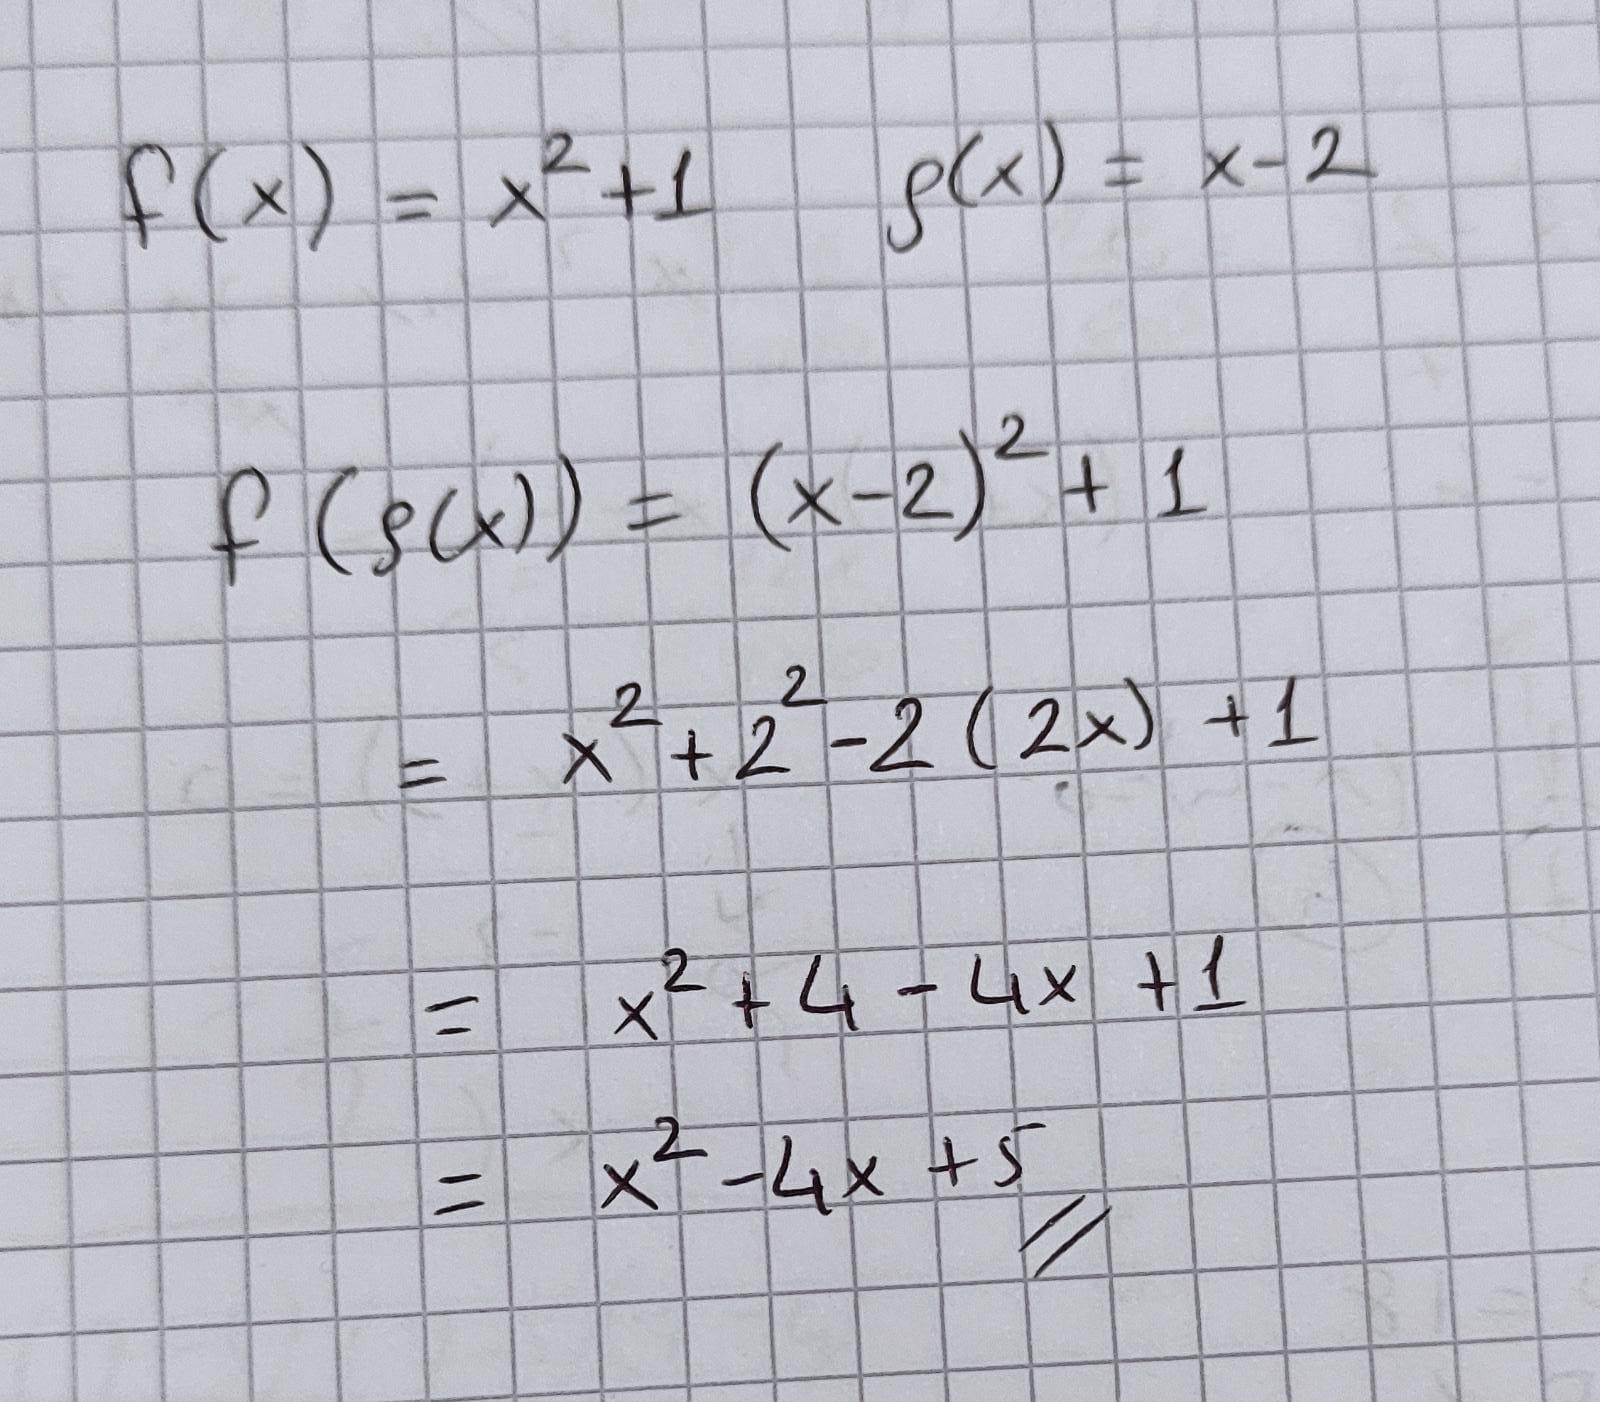 f(x) = x² + 1 g(x) = x - 2
f(g(x)) = (x-2)² + 1
= x² + 2² - 2(2x) + 1
= x² + 4 - 4x + 1
= x² - 4x + 5